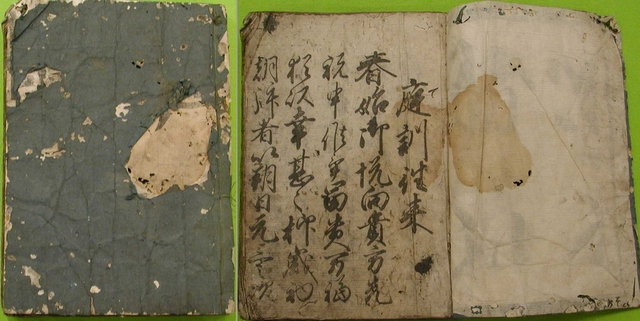 庭訓往来
春始御悦向貴方先
祝申候畢富貴万福
猶以幸甚〱抑歳初
朝拝者以朔日元三